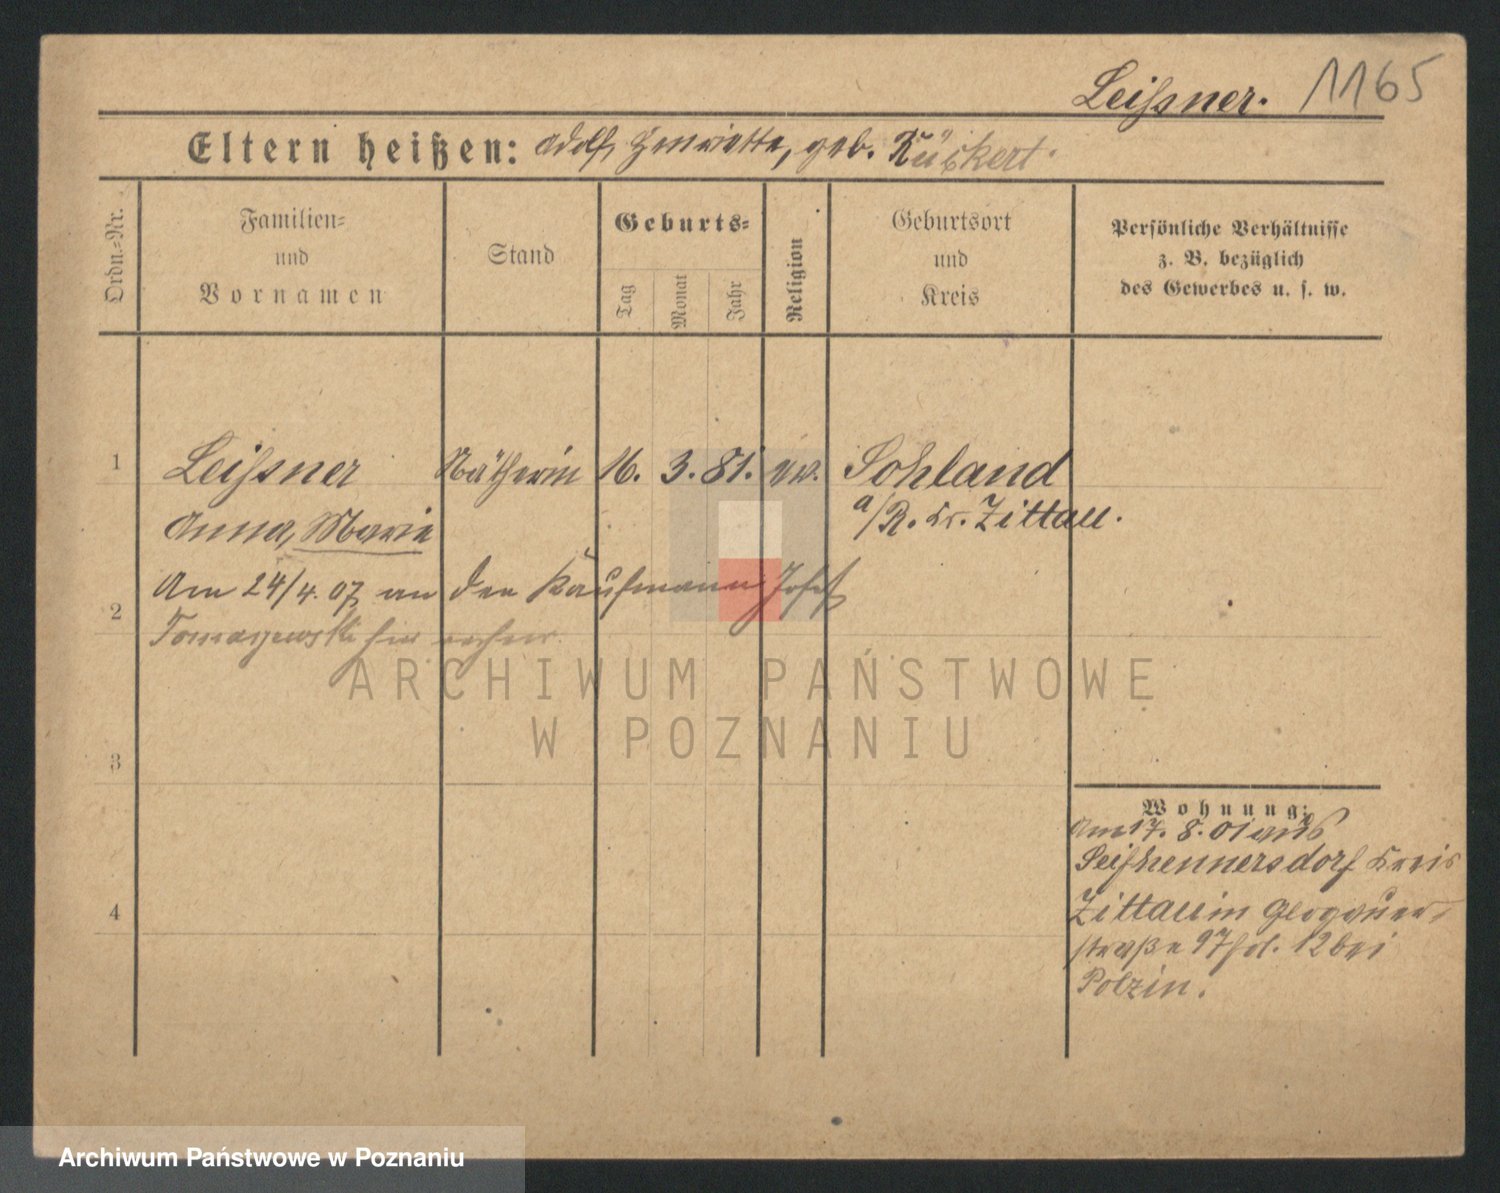 Leißner. 1165
Eltern heißen: Adolf, Henriette, geb. Rückert.
Ordn.-Nr.
Familien-
und
Vornamen
Stand
Geburts-
Tag
Monat
Jahr
Religion
Geburtsort
und
Kreis
Persönliche Verhältnisse
z. B. bezüglich
des Gewerbes u. s. w.
1 Leißner Nätherin 16. 3. 81. ev. Sohland
Anna, Marie a/R. Kr. Zittau.
Am 24/4. 07 an den Kaufmann Josef
2
Tomaszewski hier
3
Wohnung:
Am 17. 8. 01 aus
Seifhennersdorf Kreis
4
Zittau in Glogauer-
straße 97 Hol. 12 bei
Polzin.
ARCHIWUM PAŃSTWOWE
W POZNANIU
Archiwum Państwowe w Poznaniu